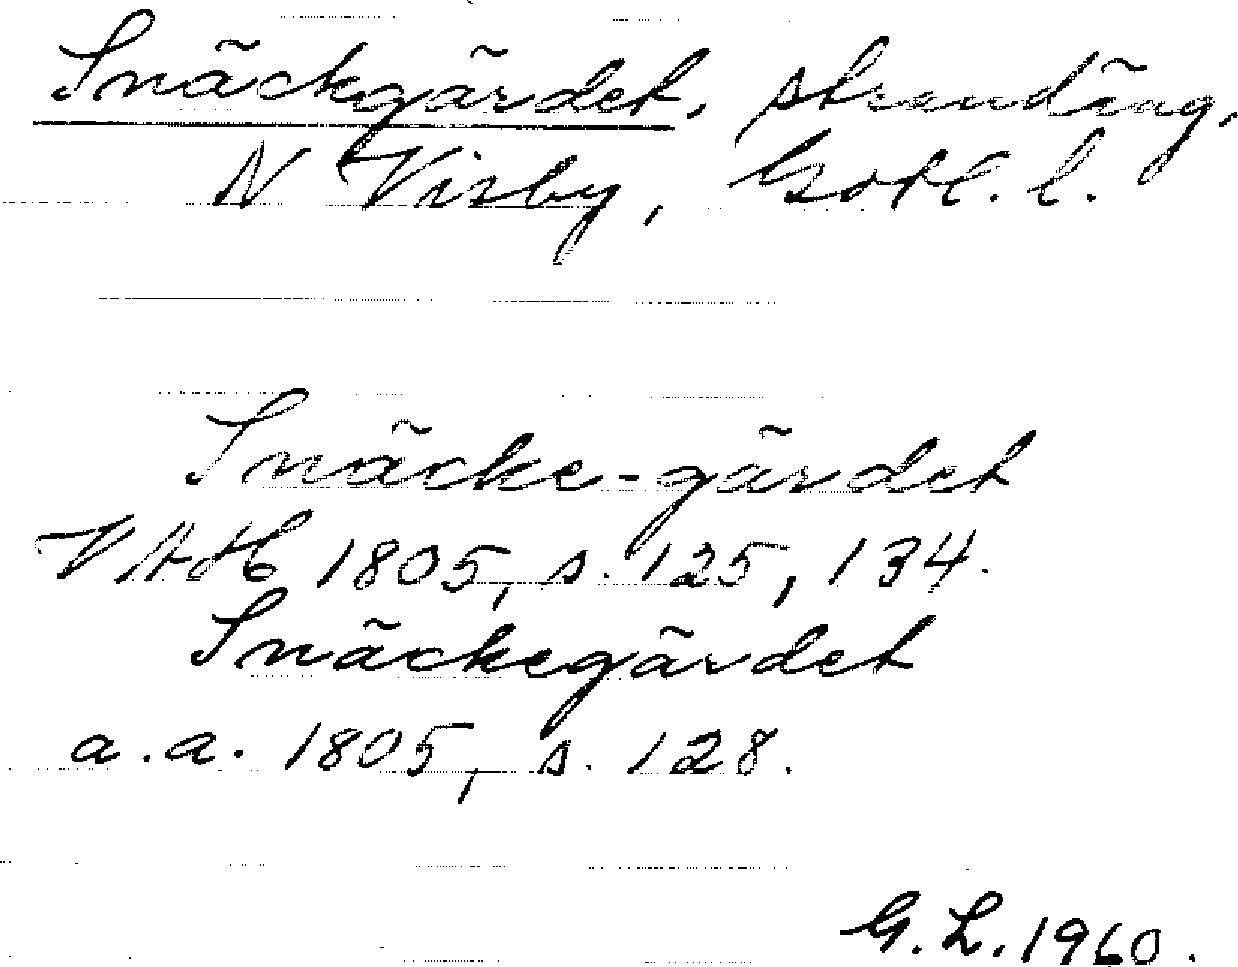 Snäckgärdet, strandäng,
N Visby, Gotl. l.
Snäcke-gärdet
VAH 1805, s. 125, 134.
Snäckegärdet
a.a. 1805, s. 128.
G. L. 1960.